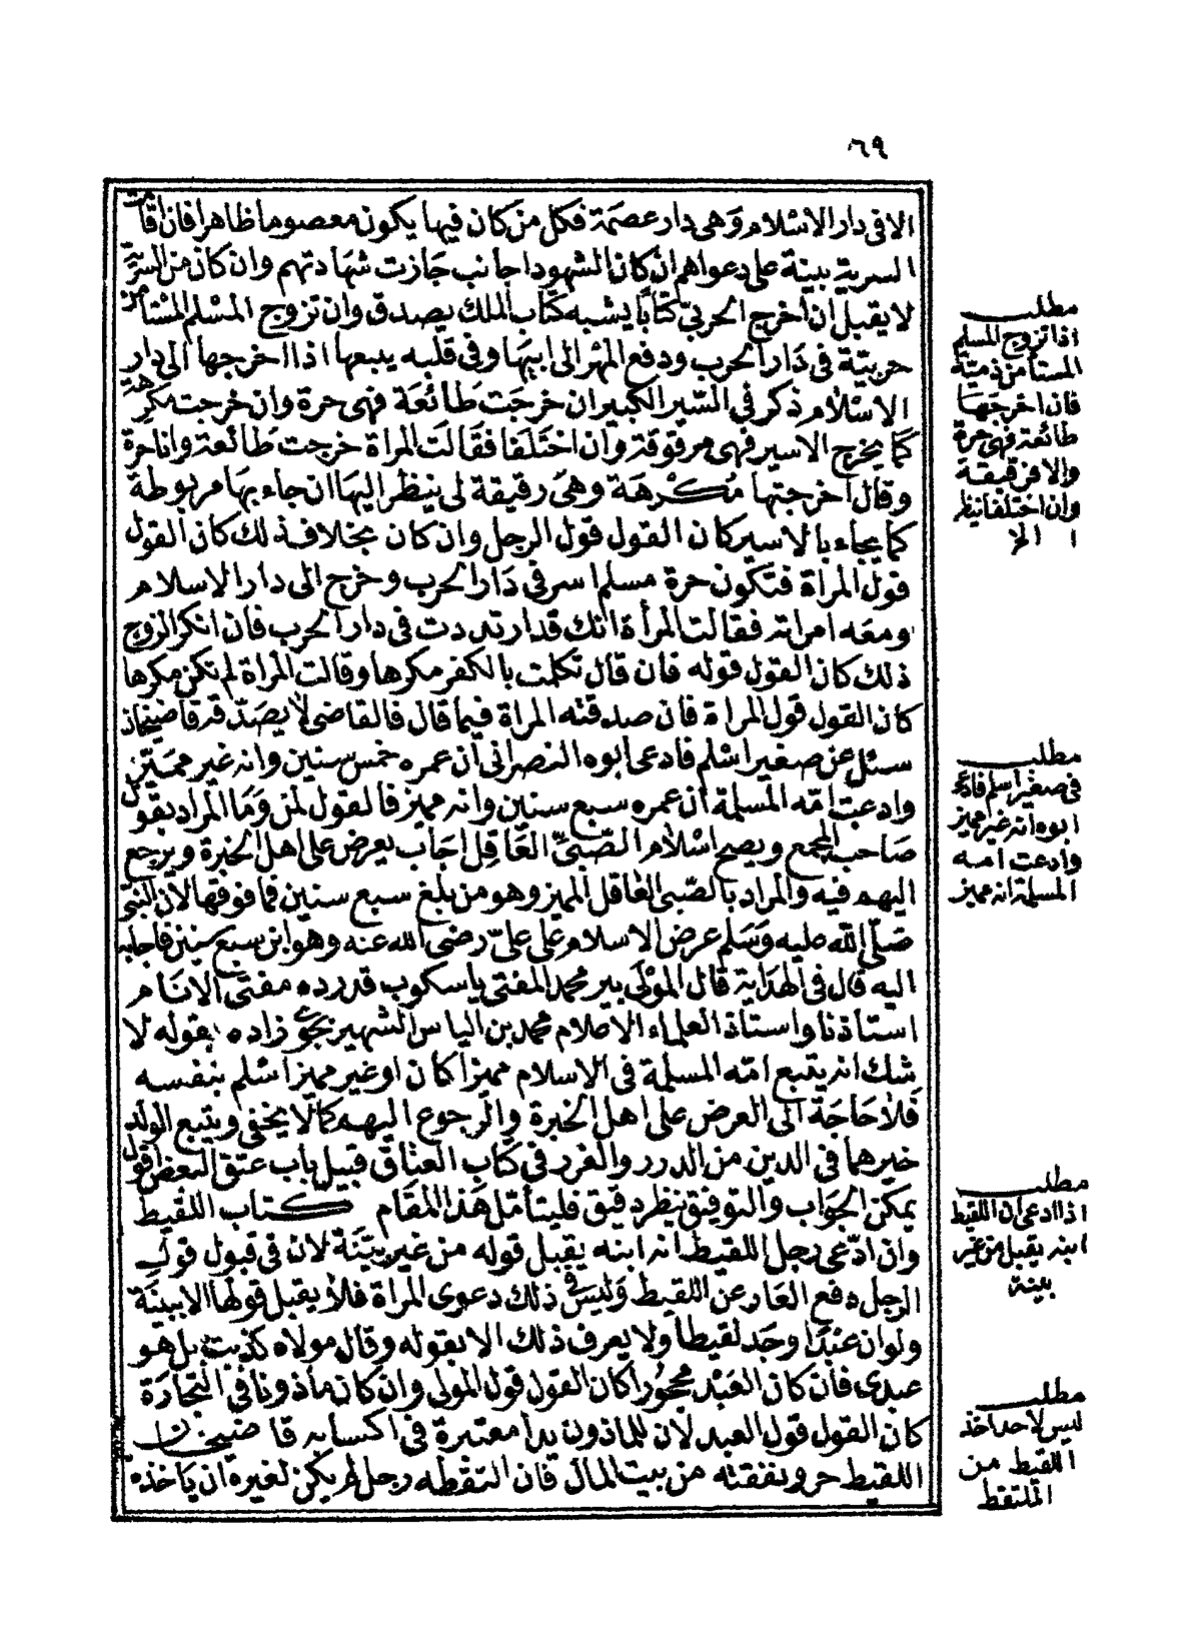 ٦٩
الا فى دار الاسلام وهى دار عصمة فكل من كان فيها يكون معصوما ظاهرا فان اقامت
السرية بينة على دعواهم ان كان الشهود اجانب جازت شهادتهم وان كان من السرية
لا يقبل ان اخرج الحربى كتابا يشبه كتاب الملك يصدق وان تزوج المسلم المستأمن
حربية فى دار الحرب ودفع المهر الى ابيها وفى قلبه يبيعها اذا اخرجها الى دار
الاسلام ذكر فى السير الكبير ان خرجت طائعة فهى حرة وان خرجت مكرهة
كما يخرج الاسير فهى مرقوقة وان اختلفا فقالت المراة خرجت طائعة وانا حرة
وقال اخرجتها مكرهة وهى رقيقة لى ينظر اليها ان جاء بها مربوطة
كما يجاء بالاسير كان القول قول الرجل وان كان بخلاف ذلك كان القول
قول المراة فتكون حرة مسلم اسر فى دار الحرب وخرج الى دار الاسلام
ومعه امراته فقالت المرأة انك قد ارتددت فى دار الحرب فان انكر الزوج
ذلك كان القول قوله فان قال تكلمت بالكفر مكرها وقالت المراة لم تكن مكرها
كان القول قول المراة فان صدقته المراة فيما قال فالقاضى لا يصدقه قاضيخان
سئل عن صغير اسلم فادعى ابوه النصرانى ان عمره خمس سنين وانه غير مميز
وادعت امه المسلمة ان عمره سبع سنين وانه مميز فالقول لمن وما المراد بقول
صاحب المجمع ويصح اسلام الصبى العاقل اجاب يعرض على اهل الخبرة ويرجع
اليهم فيه والمراد بالصبى العاقل المميز وهو من بلغ سبع سنين فما فوقها لان النبى
صلى الله عليه وسلم عرض الاسلام على على رضى الله عنه وهو ابن سبع سنين فاجابه
اليه قال فى الهداية قال المولى بير محمد المفتى باسكوب قد رده مفتى الانام
استاذنا واستاذ العلماء الاعلام محمد بن الياس الشهير بجوى زاده بقوله لا
شك انه يتبع امه المسلمة فى الاسلام مميزا كان او غير مميز اسلم بنفسه
فلا حاجة الى العرض على اهل الخبرة والرجوع اليهم كما لا يخفى ويتبع الولد
خيرهما فى الدين من الدرر والغرر فى كتاب العتاق قبيل باب عتق البعض اقول
يمكن الجواب والتوفيق بنظر دقيق فليتأمل هذا المقام كتاب اللقيط
وان ادعى رجل اللقيط انه ابنه يقبل قوله من غير بينة لان فى قبول قول
الرجل دفع العار عن اللقيط وليس فى ذلك دعوى المراة فلا يقبل قولها الا ببينة
ولو ان عبدا وجد لقيطا ولا يعرف ذلك الا بقوله وقال مولاه كذبت بل هو
عبدى فان كان العبد محجورا كان القول قول المولى وان كان مأذونا فى التجارة
كان القول قول العبد لان للماذون يدا معتبرة فى اكسابه قاضيخان
اللقيط حر ونفقته من بيت المال فان التقطه رجل لم يكن لغيره ان ياخذه
مطلب
اذا تزوج المسلم
المستأمن ذمية
فان اخرجها
طائعة فهى حرة
والا فرقيقة
وان اختلفا ينظر
الخ
مطلب
فى صغير اسلم فادعى
ابوه انه غير مميز
وادعت امه
المسلمة انه مميز
مطلب
اذا ادعى ان اللقيط
ابنه يقبل من غير
بينة
مطلب
ليس لاحد اخذ
اللقيط من
الملتقط